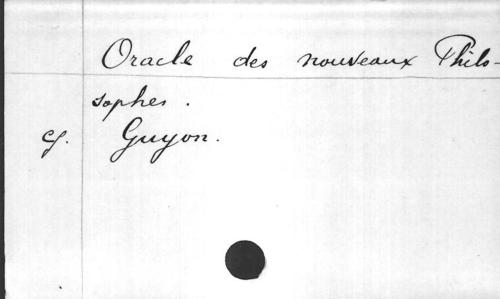 Oracle des nouveaux Philo-
sophes.
cf. Guyon.